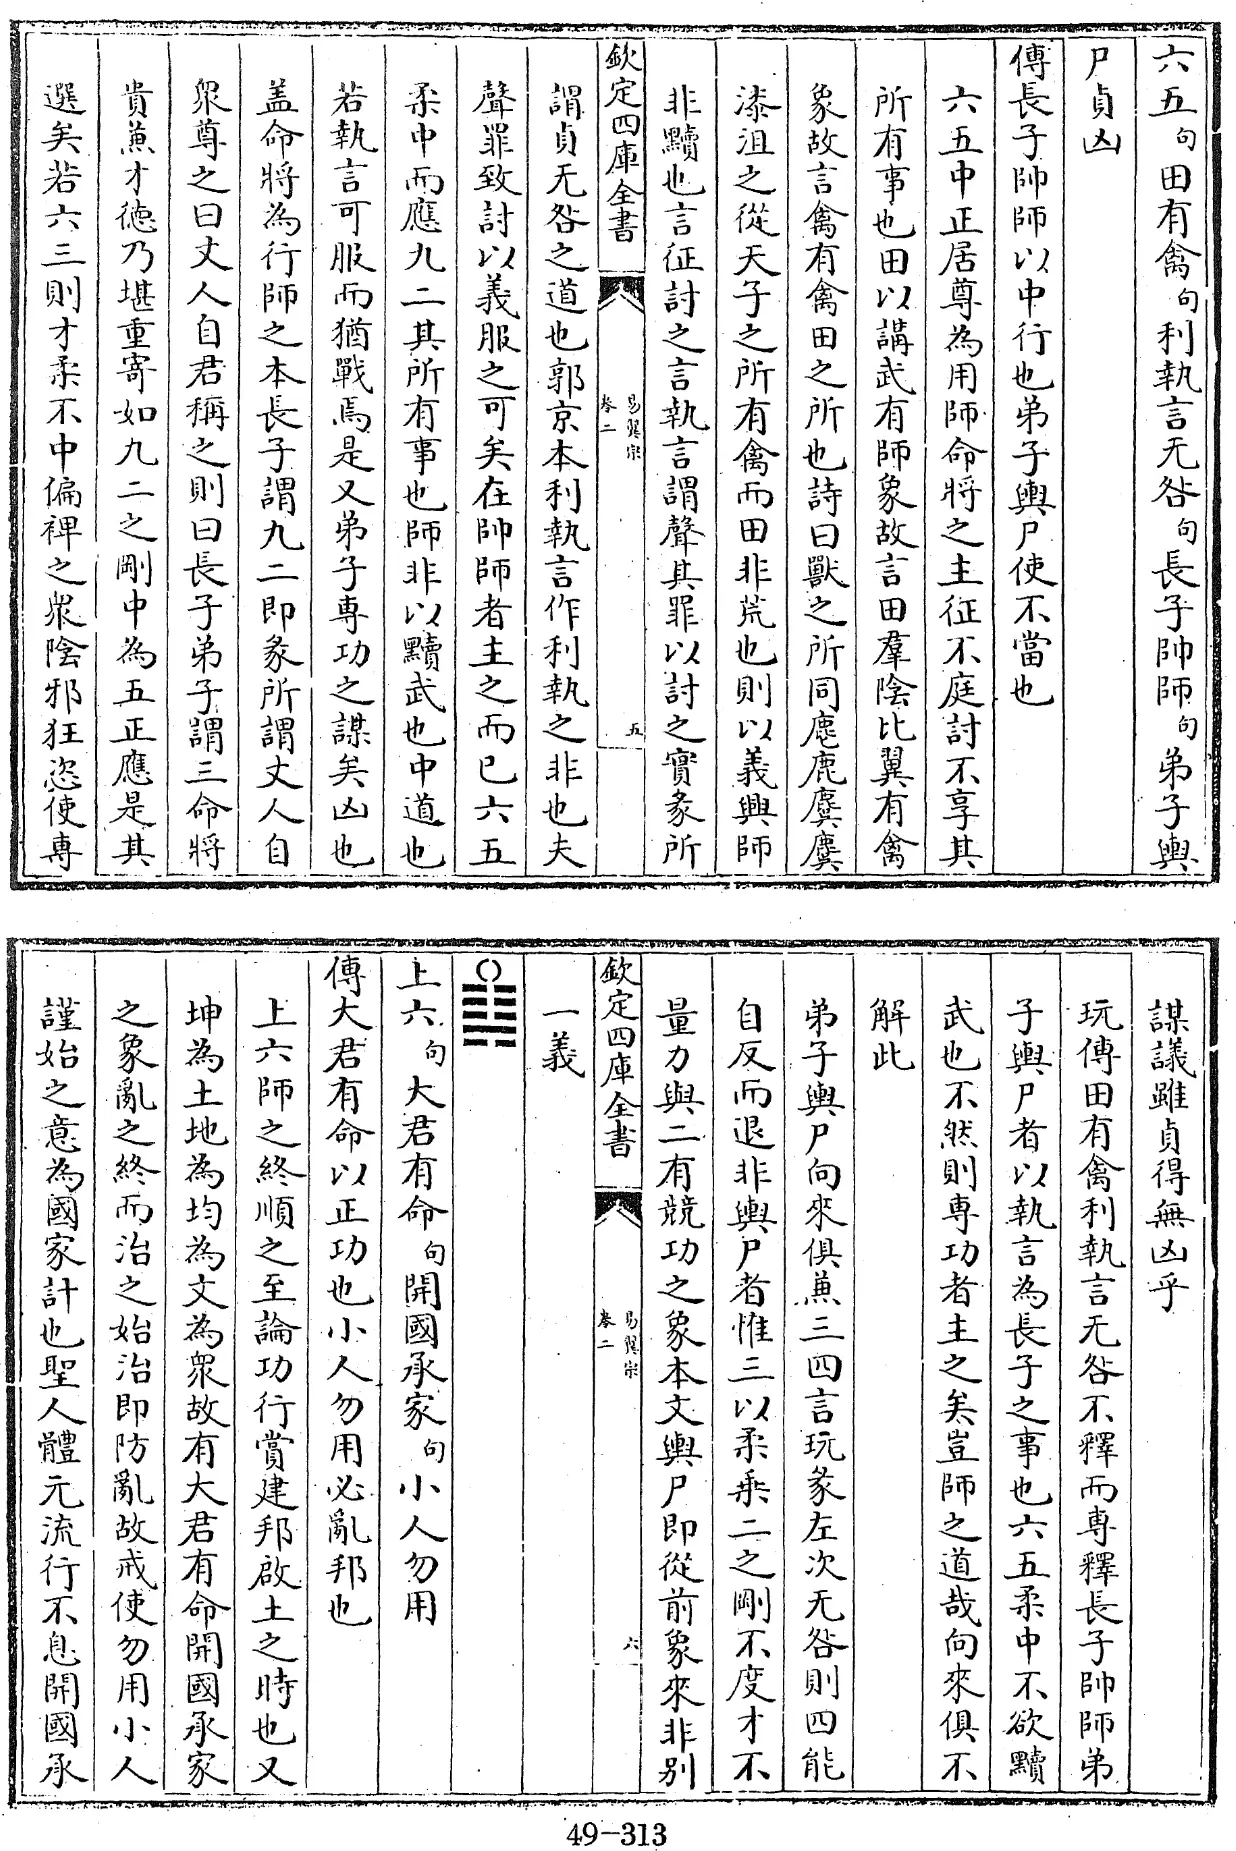 六五句田有禽句利執言无咎句長子帥師句弟子輿
尸貞凶
傳長子帥師以中行也弟子輿尸使不當也
六五中正居尊為用師命將之主征不庭討不享其
所有事也田以講武有師象故言田羣陰比翼有禽
象故言禽有禽田之所也詩曰獸之所同麀鹿麌麌
漆沮之從天子之所有禽而田非荒也則以義興師
非黷也言征討之言執言謂聲其罪以討之實彖所
欽定四庫全書
易翼宗
卷二
五
謂貞无咎之道也郭京本利執言作利執之非也夫
聲罪致討以義服之可矣在帥師者主之而已六五
柔中而應九二其所有事也師非以黷武也中道也
若執言可服而猶戰焉是又弟子專功之謀矣凶也
盖命將為行師之本長子謂九二即彖所謂丈人自
眾尊之曰丈人自君稱之則曰長子弟子謂三命將
貴蕙才德乃堪重寄如九二之剛中為五正應是其
選矣若六三則才柔不中偏裨之眾陰邪狂恣使專
謀議雖貞得無凶乎
玩傳田有禽利執言无咎不釋而專釋長子帥師弟
子輿尸者以執言為長子之事也六五柔中不欲黷
武也不然則專功者主之矣豈師之道哉向來俱不
解此
弟子輿尸向來俱蕙三四言玩彖左次无咎則四能
自反而退非輿尸者惟三以柔乗二之剛不度才不
量力與二有競功之象本文輿尸即從前象來非別
欽定四庫全書
易翼宗
卷二
六
一義
上六句大君有命句開國承家句小人勿用
傳大君有命以正功也小人勿用必亂邦也
上六師之終順之至論功行賞建邦啟土之時也又
坤為土地為均為文為眾故有大君有命開國承家
之象亂之終而治之始治即防亂故戒使勿用小人
謹始之意為國家計也聖人體元流行不息開國承
49-313